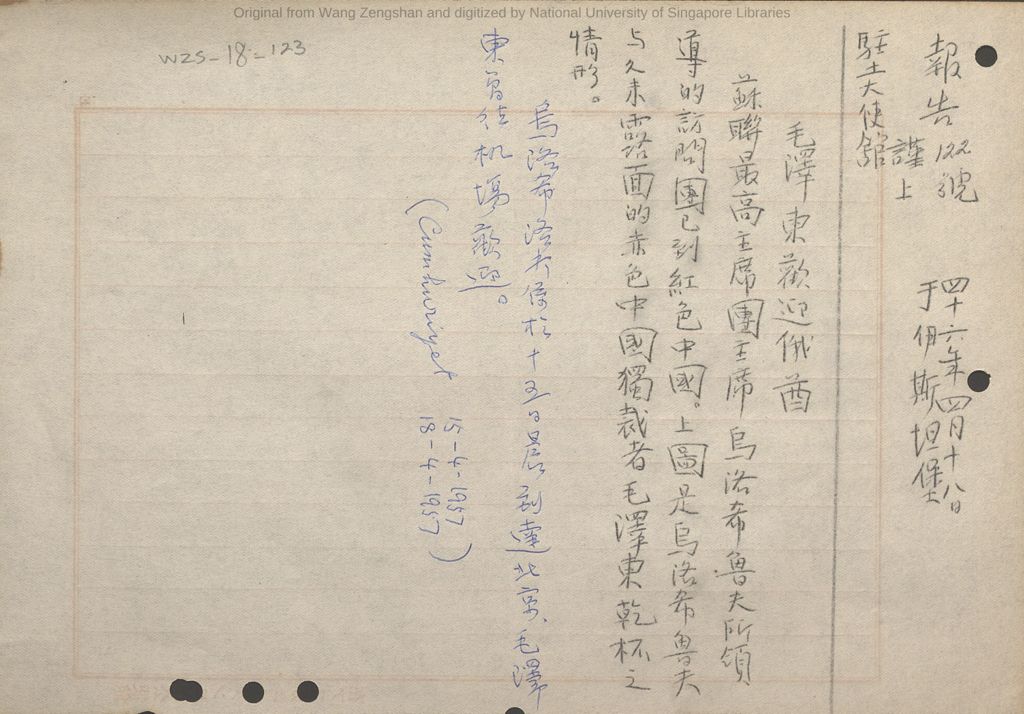 Original from Wang Zengshan and digitized by National University of Singapore Libraries
WZS-18-123
報告 122號 四十六年四月十八日
謹上 于伊斯坦堡
駐土大使館
毛澤東歡迎俄酋
蘇聯最高主席團主席烏洛希魯夫所領
導的訪問團已到紅色中國。上圖是烏洛希魯夫
与久未露面的赤色中國獨裁者毛澤東乾杯之
情形。
烏洛希洛夫係於十五日晨到達北京、毛澤
東曾往机場歡迎。
(Cumhuriyet 15-4-1957
18-4-1957)